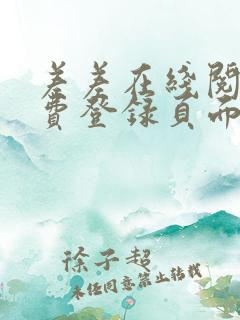 羞羞在线阅
费登录页面
徐子超
未经同意禁止转载